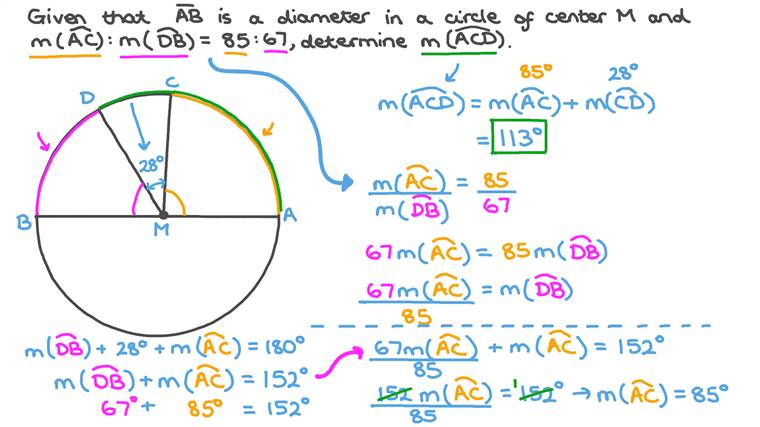 Given that A͞B is a diameter in a circle of center M and
m(A͡C) : m(D͡B) = 85 : 67, determine m(A͡CD).
85° 28°
m(A͡CD) = m(A͡C) + m(C͡D)
= 113°
D C
28°
B M A
m(A͡C)/m(D͡B) = 85/67
67m(A͡C) = 85m(D͡B)
67m(A͡C)/85 = m(D͡B)
m(D͡B) + 28° + m(A͡C) = 180°
m(D͡B) + m(A͡C) = 152°
67° + 85° = 152°
67m(A͡C)/85 + m(A͡C) = 152°
152 m(A͡C)/85 = ¹152° → m(A͡C) = 85°